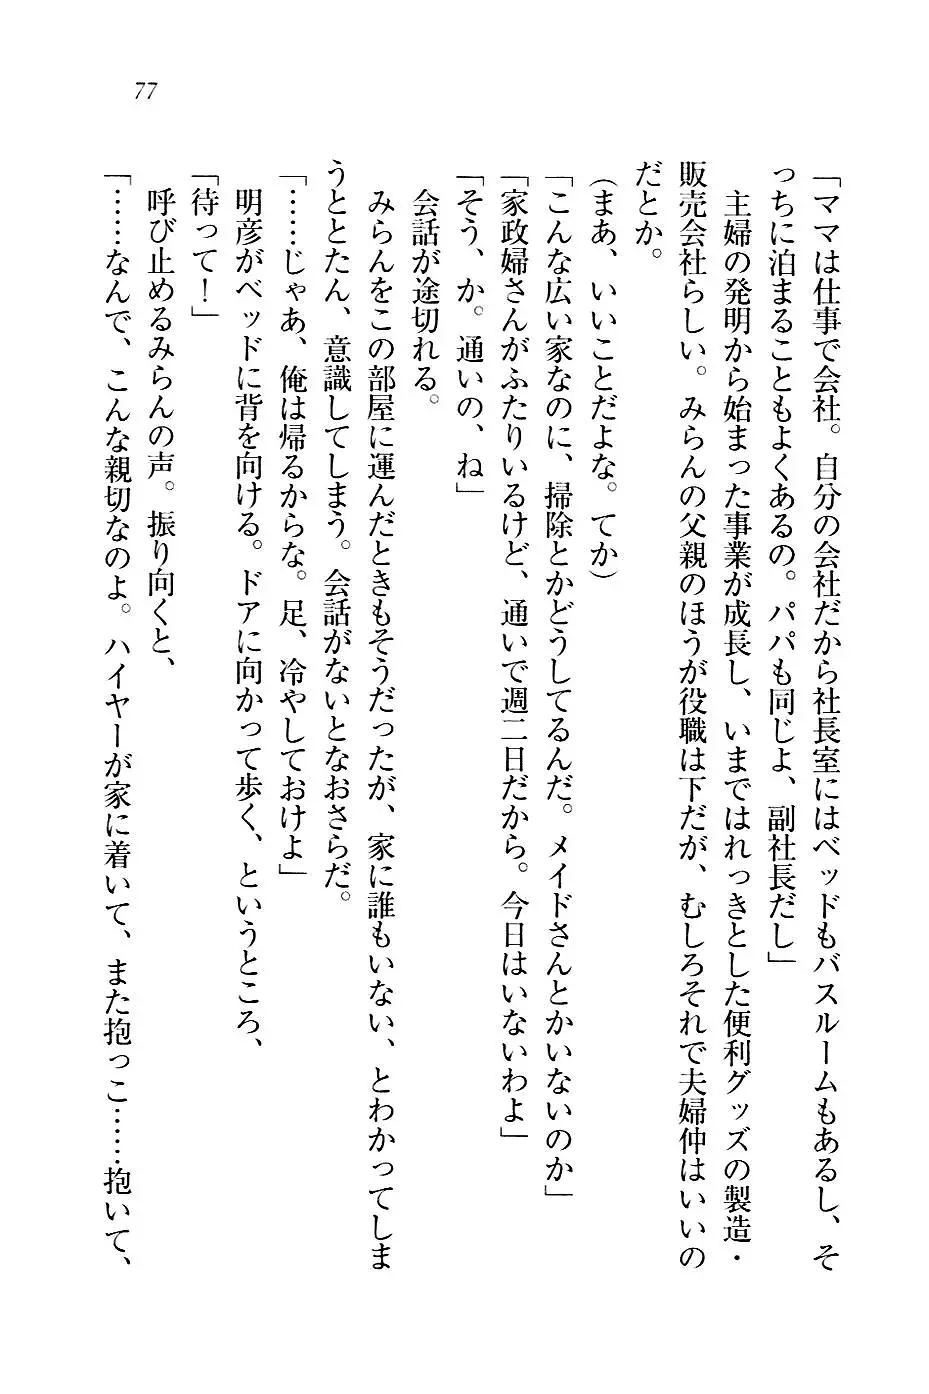 77
「ママは仕事で会社。自分の会社だから社長室にはベッドもバスルームもあるし、そ
っちに泊まることもよくあるの。パパも同じよ、副社長だし」
主婦の発明から始まった事業が成長し、いまではれっきとした便利グッズの製造・
販売会社らしい。みらんの父親のほうが役職は下だが、むしろそれで夫婦仲はいいの
だとか。
(まあ、いいことだよな。てか)
「こんな広い家なのに、掃除とかどうしてるんだ。メイドさんとかいないのか」
「家政婦さんがふたりいるけど、通いで週二日だから。今日はいないわよ」
「そう、か。通いの、ね」
会話が途切れる。
みらんをこの部屋に運んだときもそうだったが、家に誰もいない、とわかってしま
うととたん、意識してしまう。会話がないとなおさらだ。
「……じゃあ、俺は帰るからな。足、冷やしておけよ」
明彦がベッドに背を向ける。ドアに向かって歩く、というところ、
「待って！」
呼び止めるみらんの声。振り向くと、
「……なんで、こんな親切なのよ。ハイヤーが家に着いて、また抱っこ……抱いて、